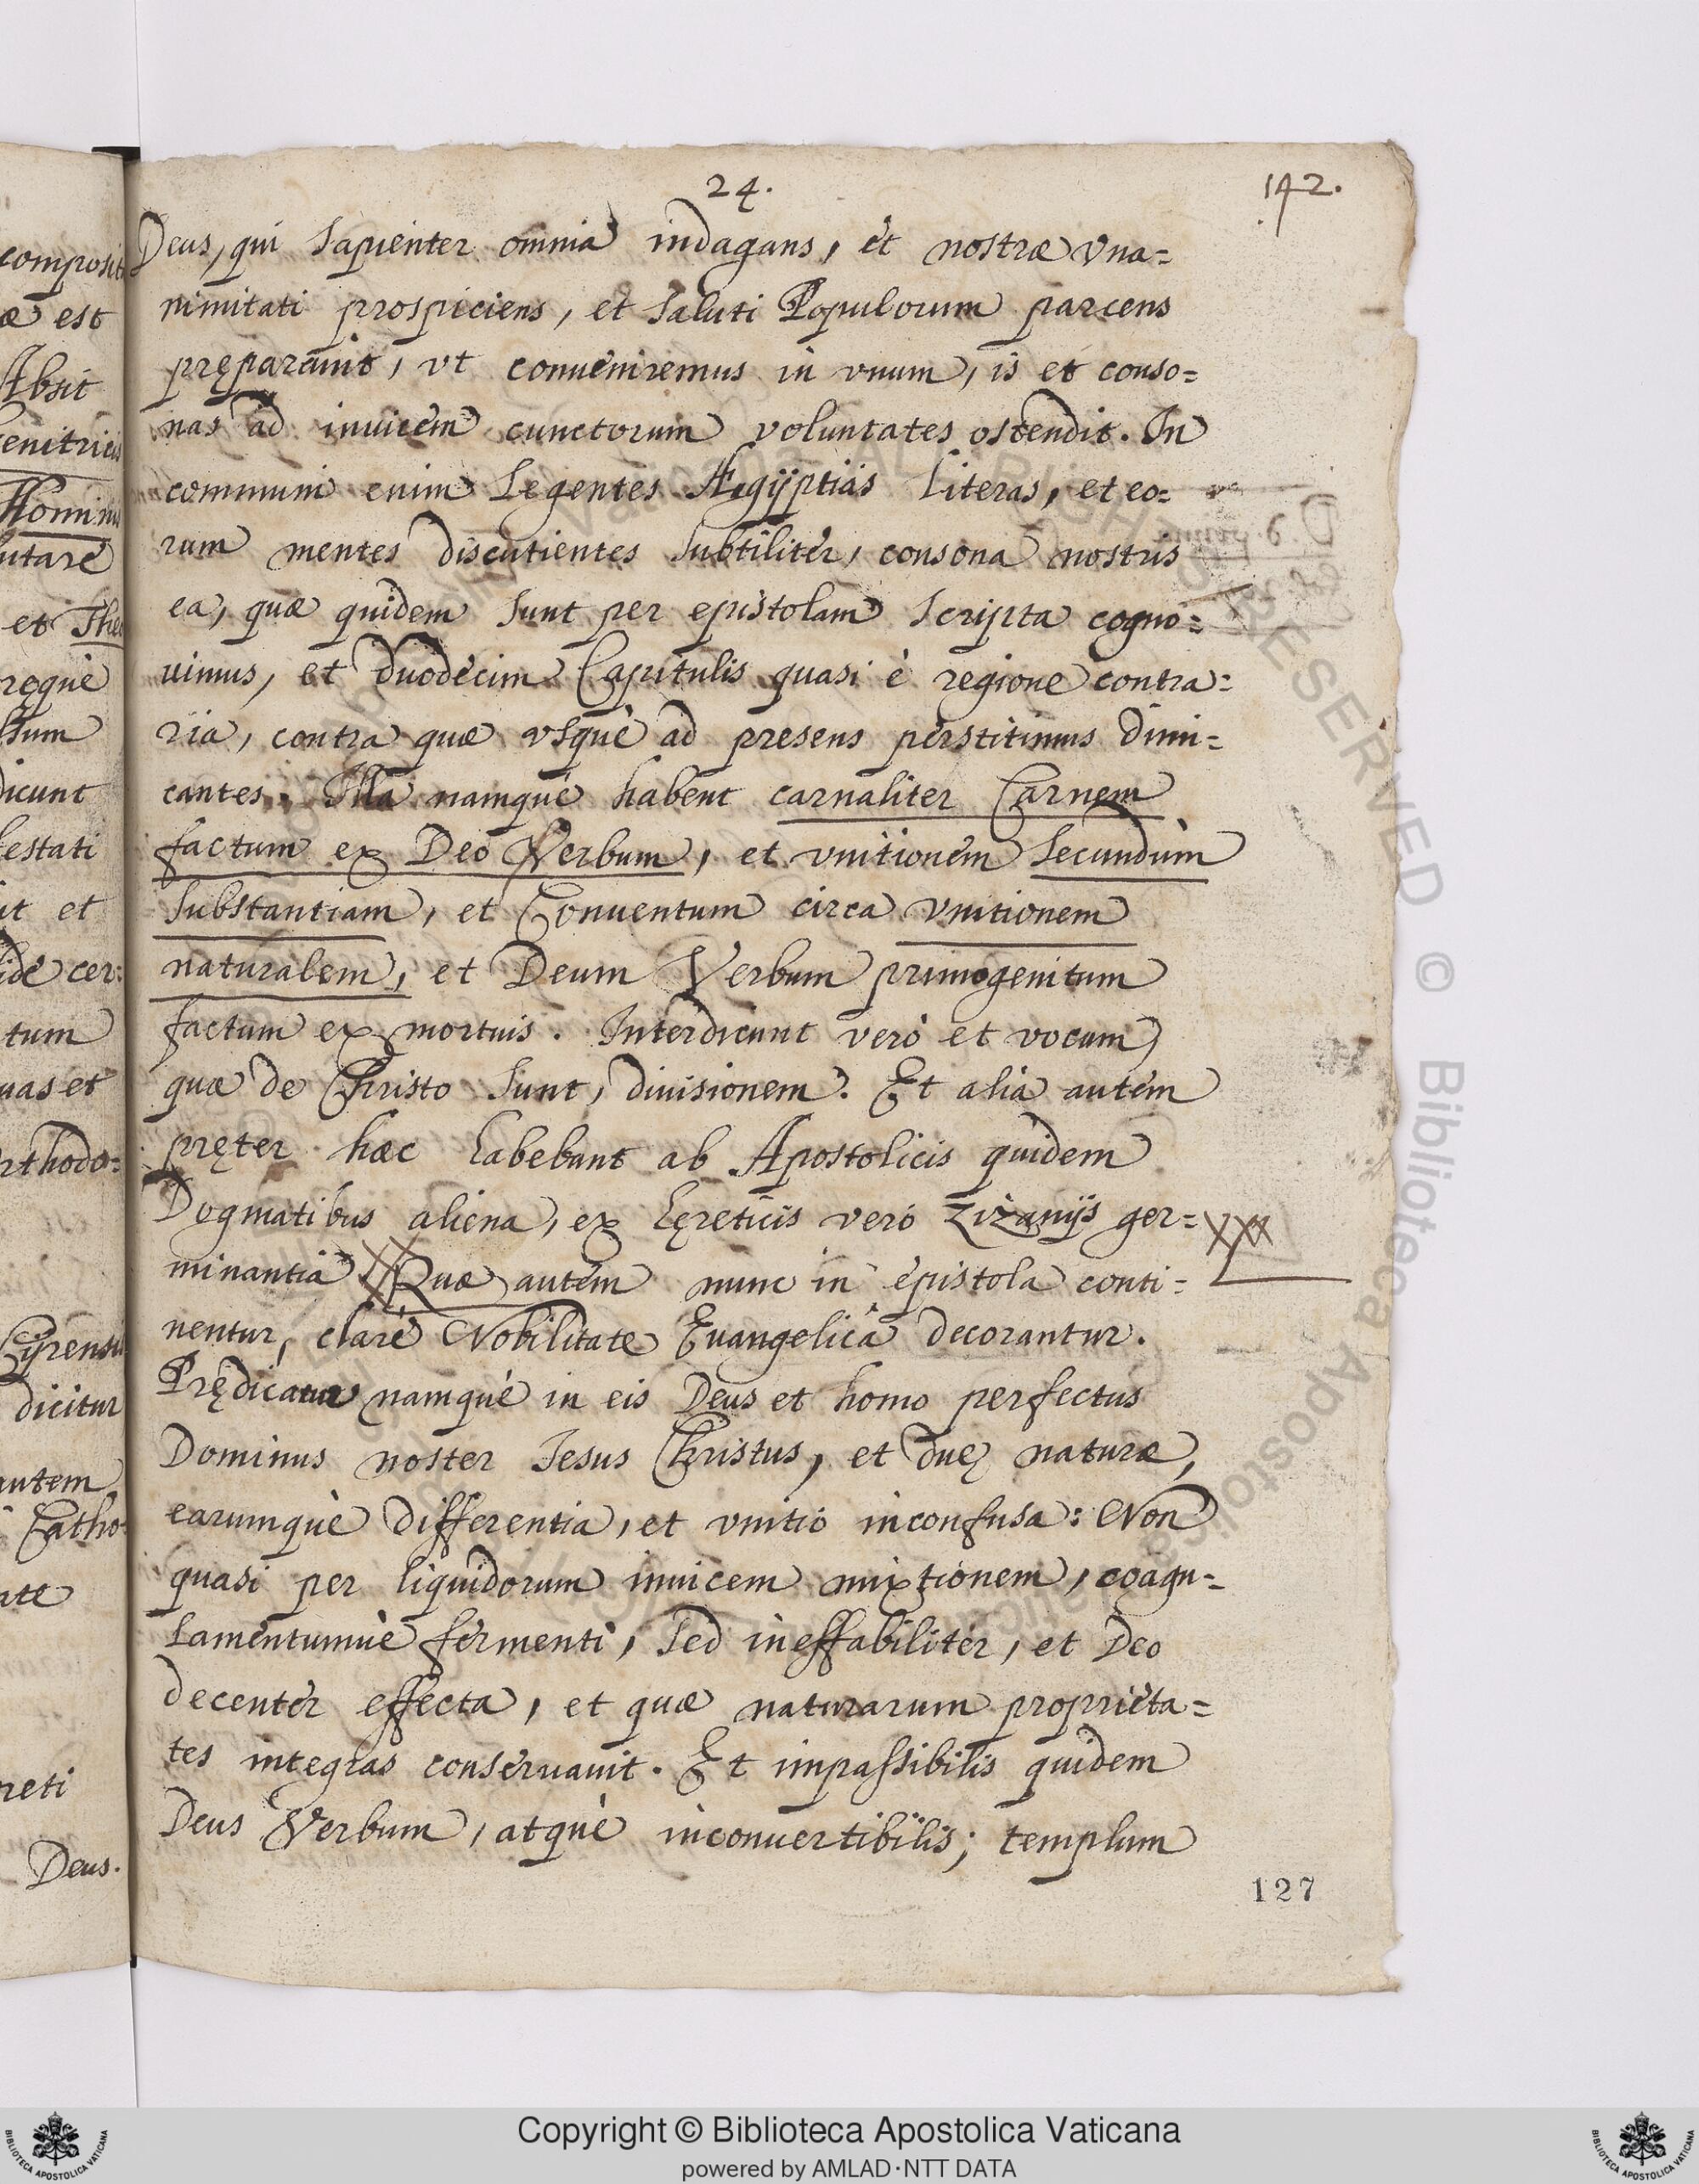 24.
142.
Deus, qui sapienter omnia indagans, et nostræ vna=
nimitati prospiciens, et saluti Populorum parcens
pręparauit, vt conueniremus in vnum, is et conso=
nas ad inuicem cunctorum voluntates ostendit. In
communi enim legentes Ægyptias literas, et eo=
rum mentes discutientes subtiliter, consona nostris
ea, quæ quidem sunt per epistolam scripta cogno=
uimus, et duodecim Capitulis quasi è regione contra=
ria, contra quæ vsque ad presens perstitimus dimi=
cantes. Illa namque habent carnaliter Carnem
factum ex Deo Verbum, et vnitionem secundùm
substantiam, et Conuentum circa vnitionem
naturalem, et Deum Verbum primogenitum
factum ex mortuis. Interdicunt verò et vocum
quæ de Christo sunt, diuisionem. Et alia autem
pręter hæc habebant ab Apostolicis quidem
Dogmatibus aliena, ex hęreticis verò zizanijs ger=
minantia. Quæ autem nunc in epistola conti=
nentur, clarè Nobilitate Euangelica decorantur.
Prędicatur namque in eis Deus et homo perfectus
Dominus noster Iesus Christus, et duę naturæ,
earumquè differentia, et vnitio inconfusa: Non
quasi per liquidorum inuicem mixtionem, coagu=
lamentumuè fermenti, sed ineffabiliter, et Deo
decenter effecta, et quæ naturarum proprieta=
tes integras conseruauit. Et impassibilis quidem
Deus Verbum, atquè inconuertibilis; templum
127
composit
æ est
Absit
enitricis
utare
et The
roquè
dicunt
estati
it et
cer=
tum
uas et
rthodo=
dicitur
autem
Catho=
Deus.
Copyright © Biblioteca Apostolica Vaticana
powered by AMLAD·NTT DATA
BIBLIOTECA APOSTOLICA VATICANA
BIBLIOTECA APOSTOLICA VATICANA